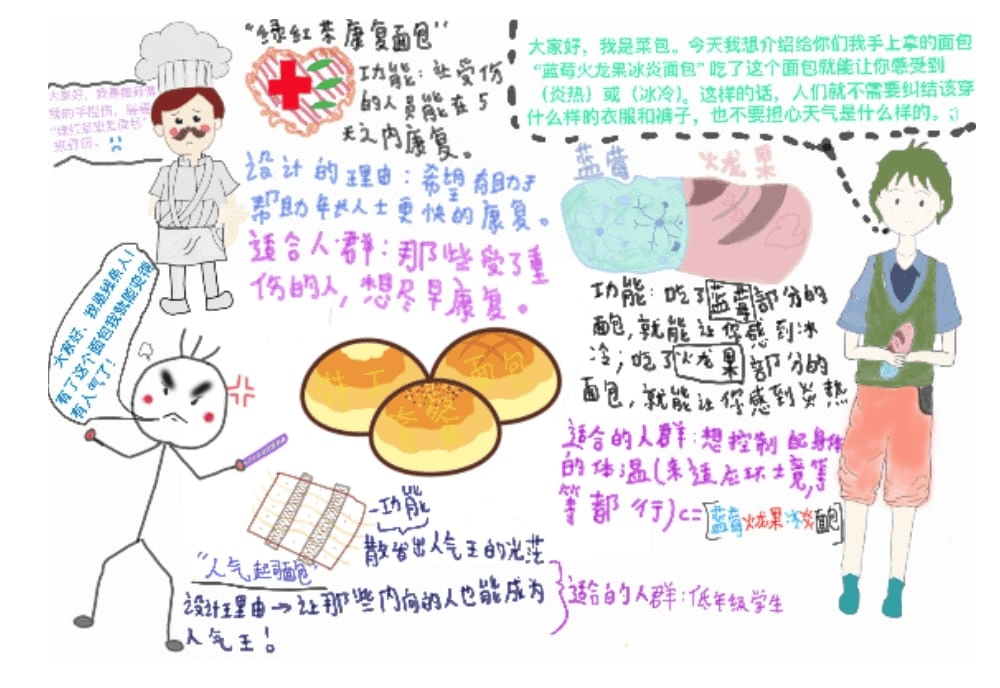 "绿红茶康复面包"
功能：让受伤
的人员能在5
天之内康复。
设计的理由：希望有助于
帮助年长人士更快的康复。
适合人群：那些受了重
伤的人，想尽早康复。
大家好，我是
我的手
"绿红茶
大家好，我是菜包。今天我想介绍给你们我手上拿的面包
“蓝莓火龙果冰炎面包” 吃了这个面包就能让你感受到
（炎热）或（冰冷）。这样的话，人们就不需要纠结该穿
什么样的衣服和裤子，也不要担心天气是什么样的。;)
蓝莓 火龙果
功能：吃了蓝莓部分的
面包，就能让你感到冰
冷；吃了火龙果部分的
面包，就能让你感到炎热
适合的人群：想控制
的体温(来适应环境,等
等都行)c=蓝莓火龙果冰炎面包
大家好，我是
有了这个面包我就能变得
有人气了！
面包
-功能
散发出人气王的光茫
"人气起司面包"
设计理由→让那些内向的人也能成为
人气王！
适合的人群：低年级学生